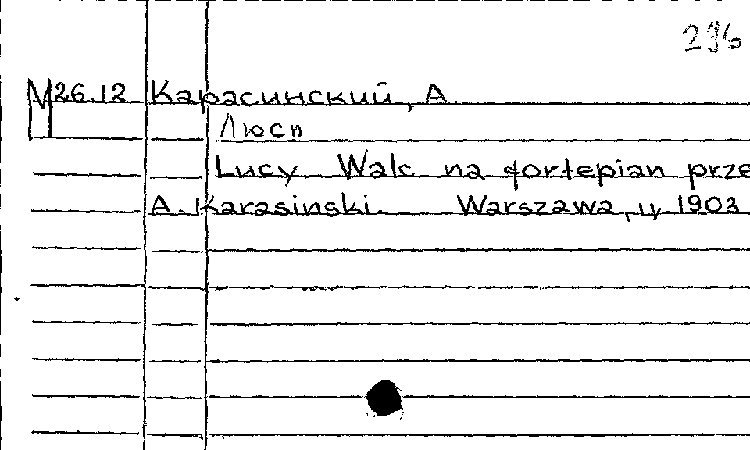 296
М 26.12 Карасинский, А.
Люси
Lucy Walc na fortepian prze
A. Karasinski. Warszawa, ц 1903